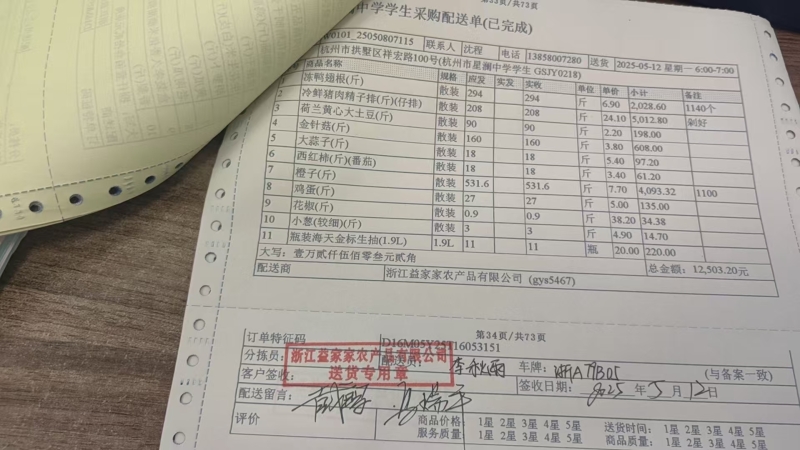 第33页/共73页
中学学生采购配送单(已完成)
0101_25050807115 联系人 沈程 电话 13858007280 送货 2025-05-12 星期一 6:00-7:00
杭州市拱墅区祥宏路100号(杭州市星澜中学学生 GSJY0218)
商品名称 规格 应发 实发 实收 单位 单价 小计 备注
冻鸭翅根(斤) 散装 294 294 斤 6.90 2,028.60 1140个
2 冷鲜猪肉精子排(斤)(仔排) 散装 208 208 斤 24.10 5,012.80 剁好
3 荷兰黄心大土豆(斤) 散装 90 90 斤 2.20 198.00
4 金针菇(斤) 散装 160 160 斤 3.80 608.00
5 大蒜子(斤) 散装 18 18 斤 5.40 97.20
6 西红柿(斤)(番茄) 散装 18 18 斤 3.40 61.20
7 橙子(斤) 散装 531.6 531.6 斤 7.70 4,093.32 1100
8 鸡蛋(斤) 散装 27 27 斤 5.00 135.00
9 花椒(斤) 散装 0.9 0.9 斤 38.20 34.38
10 小葱(较细)(斤) 散装 3 3 斤 4.90 14.70
11 瓶装海天金标生抽(1.9L) 1.9L 11 11 瓶 20.00 220.00
大写：壹万贰仟伍佰零叁元贰角 总金额：12,503.20元
配送商 浙江益家家农产品有限公司 (gys5467)
第34页/共73页
订单特征码 D16M05Y25116053151
分拣员： 配送员： 李秋雨 车牌： 浙A (与备案一致)
浙江益家家农产品有限公司
送货专用章
客户签收： 签收日期： 2025 年 5 月 12 日
配送留言：
评价 商品价格： 1星 2星 3星 4星 5星 送货时间： 1星 2星 3星 4星 5星
服务质量： 1星 2星 3星 4星 5星 商品质量： 1星 2星 3星 4星 5星